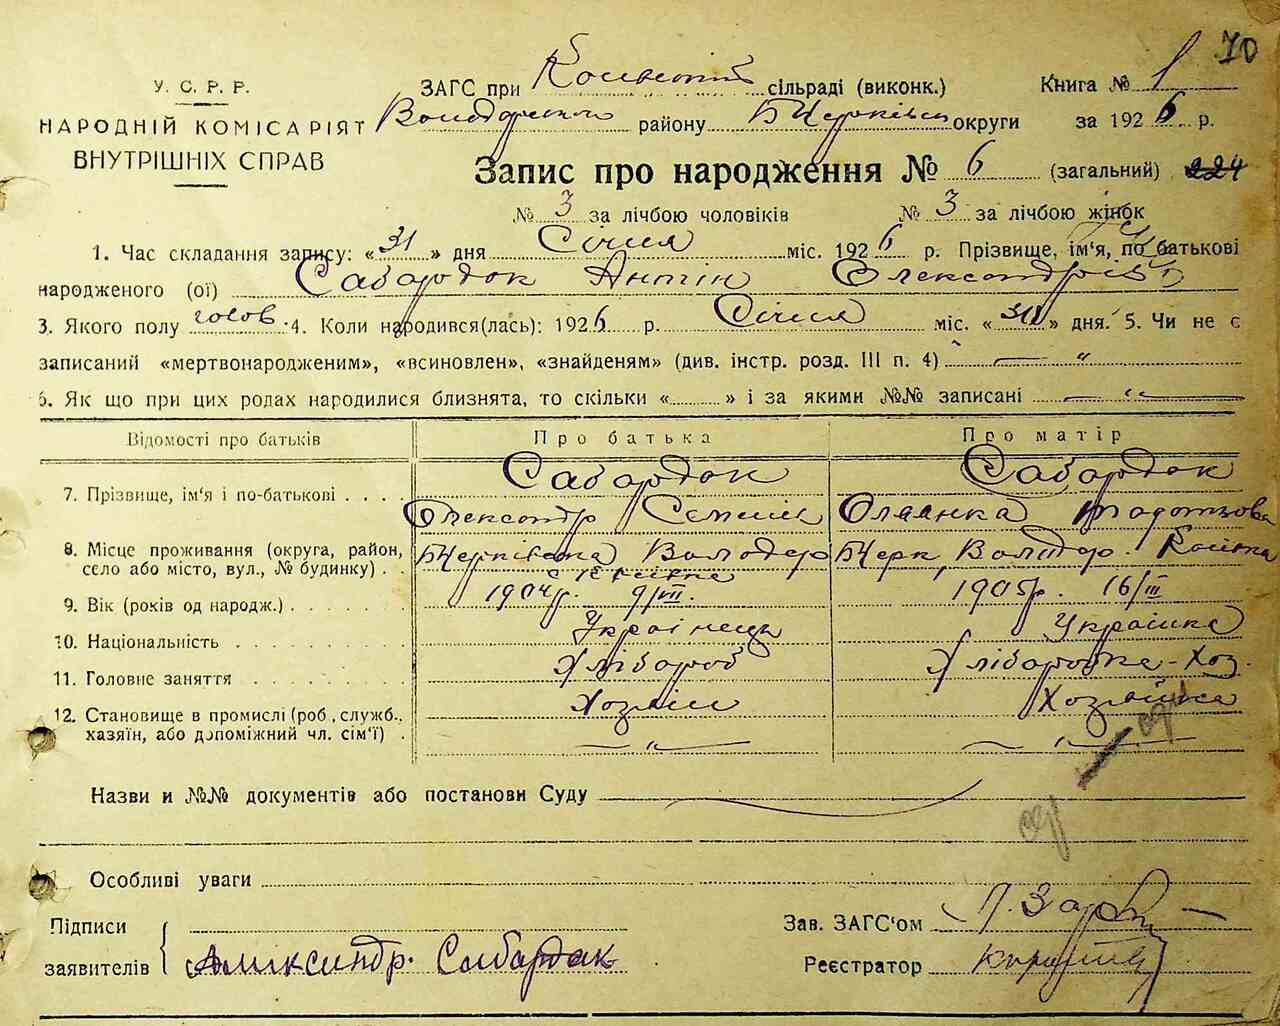 70
У. С. Р. Р.
НАРОДНІЙ КОМІСАРІЯТ
ВНУТРІШНІХ СПРАВ
ЗАГС при сільраді (виконк.) Книга № 1
району округи за 1926 р.
Запис про народження № 6 (загальний) 224
№ 3 за лічбою чоловіків № 3 за лічбою жінок
1. Час складання запису: «31» дня Січня міс. 1926 р. Прізвище, ім'я, по батькові
народженого (ої) Сабардок Антін Олександрові
3. Якого полу чолов. 4. Коли народився(лась): 1926 р. Січня міс. «30» дня. 5. Чи не є
записаний «мертвонародженим», «всиновлен», «знайденям» (див. інстр. розд. III п. 4) — „
6. Як що при цих родах народилися близнята, то скільки «.......» і за якими №№ записані — „ —
Відомості про батьків Про батька Про матір
7. Прізвище, ім'я і по-батькові . . . . Сабардок Сабардок
Олександр Олянка
8. Місце проживання (округа, район, БЦерківська Володар БЦерк, Володар.
село або місто, вул., № будинку) . .
9. Вік (років од народж.) . . . . . . . 1904р. 9/VII. 1905р. 16/III
10. Національність . . . . . . . . . Українець Українка
11. Головне заняття . . . . . . . . Хлібороб Хліборобка-Хоз.
12. Становище в промислі (роб., служб., Хозяін Хозяйка
хазяїн, або допоміжний чл. сім'ї) . — „ — — „ —
Назви и №№ документів або постанови Суду
Особливі уваги
Підписи Зав. ЗАГС'ом
заявителів Сабардак Реєстратор